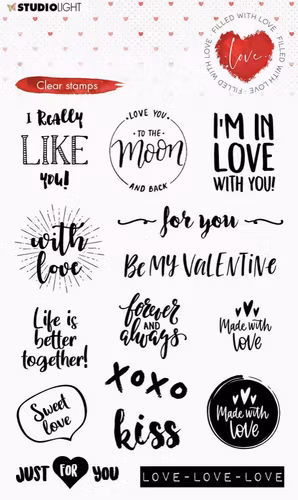 STUDIOLIGHT
FILLED WITH LOVE · FILLED WITH LOVE · FILLED WITH LOVE ·
Love
Clear stamps
I Really
LIKE
you!
· LOVE YOU ·
TO THE
Moon
AND BACK
I'M IN
LOVE
WITH YOU!
with
love
for you
Be MY VALENTINE
Life is
better
together!
forever
AND
always
Made with
love
xoxo
Sweet
love
kiss
Made with
love
JUST FOR YOU
LOVE-LOVE-LOVE